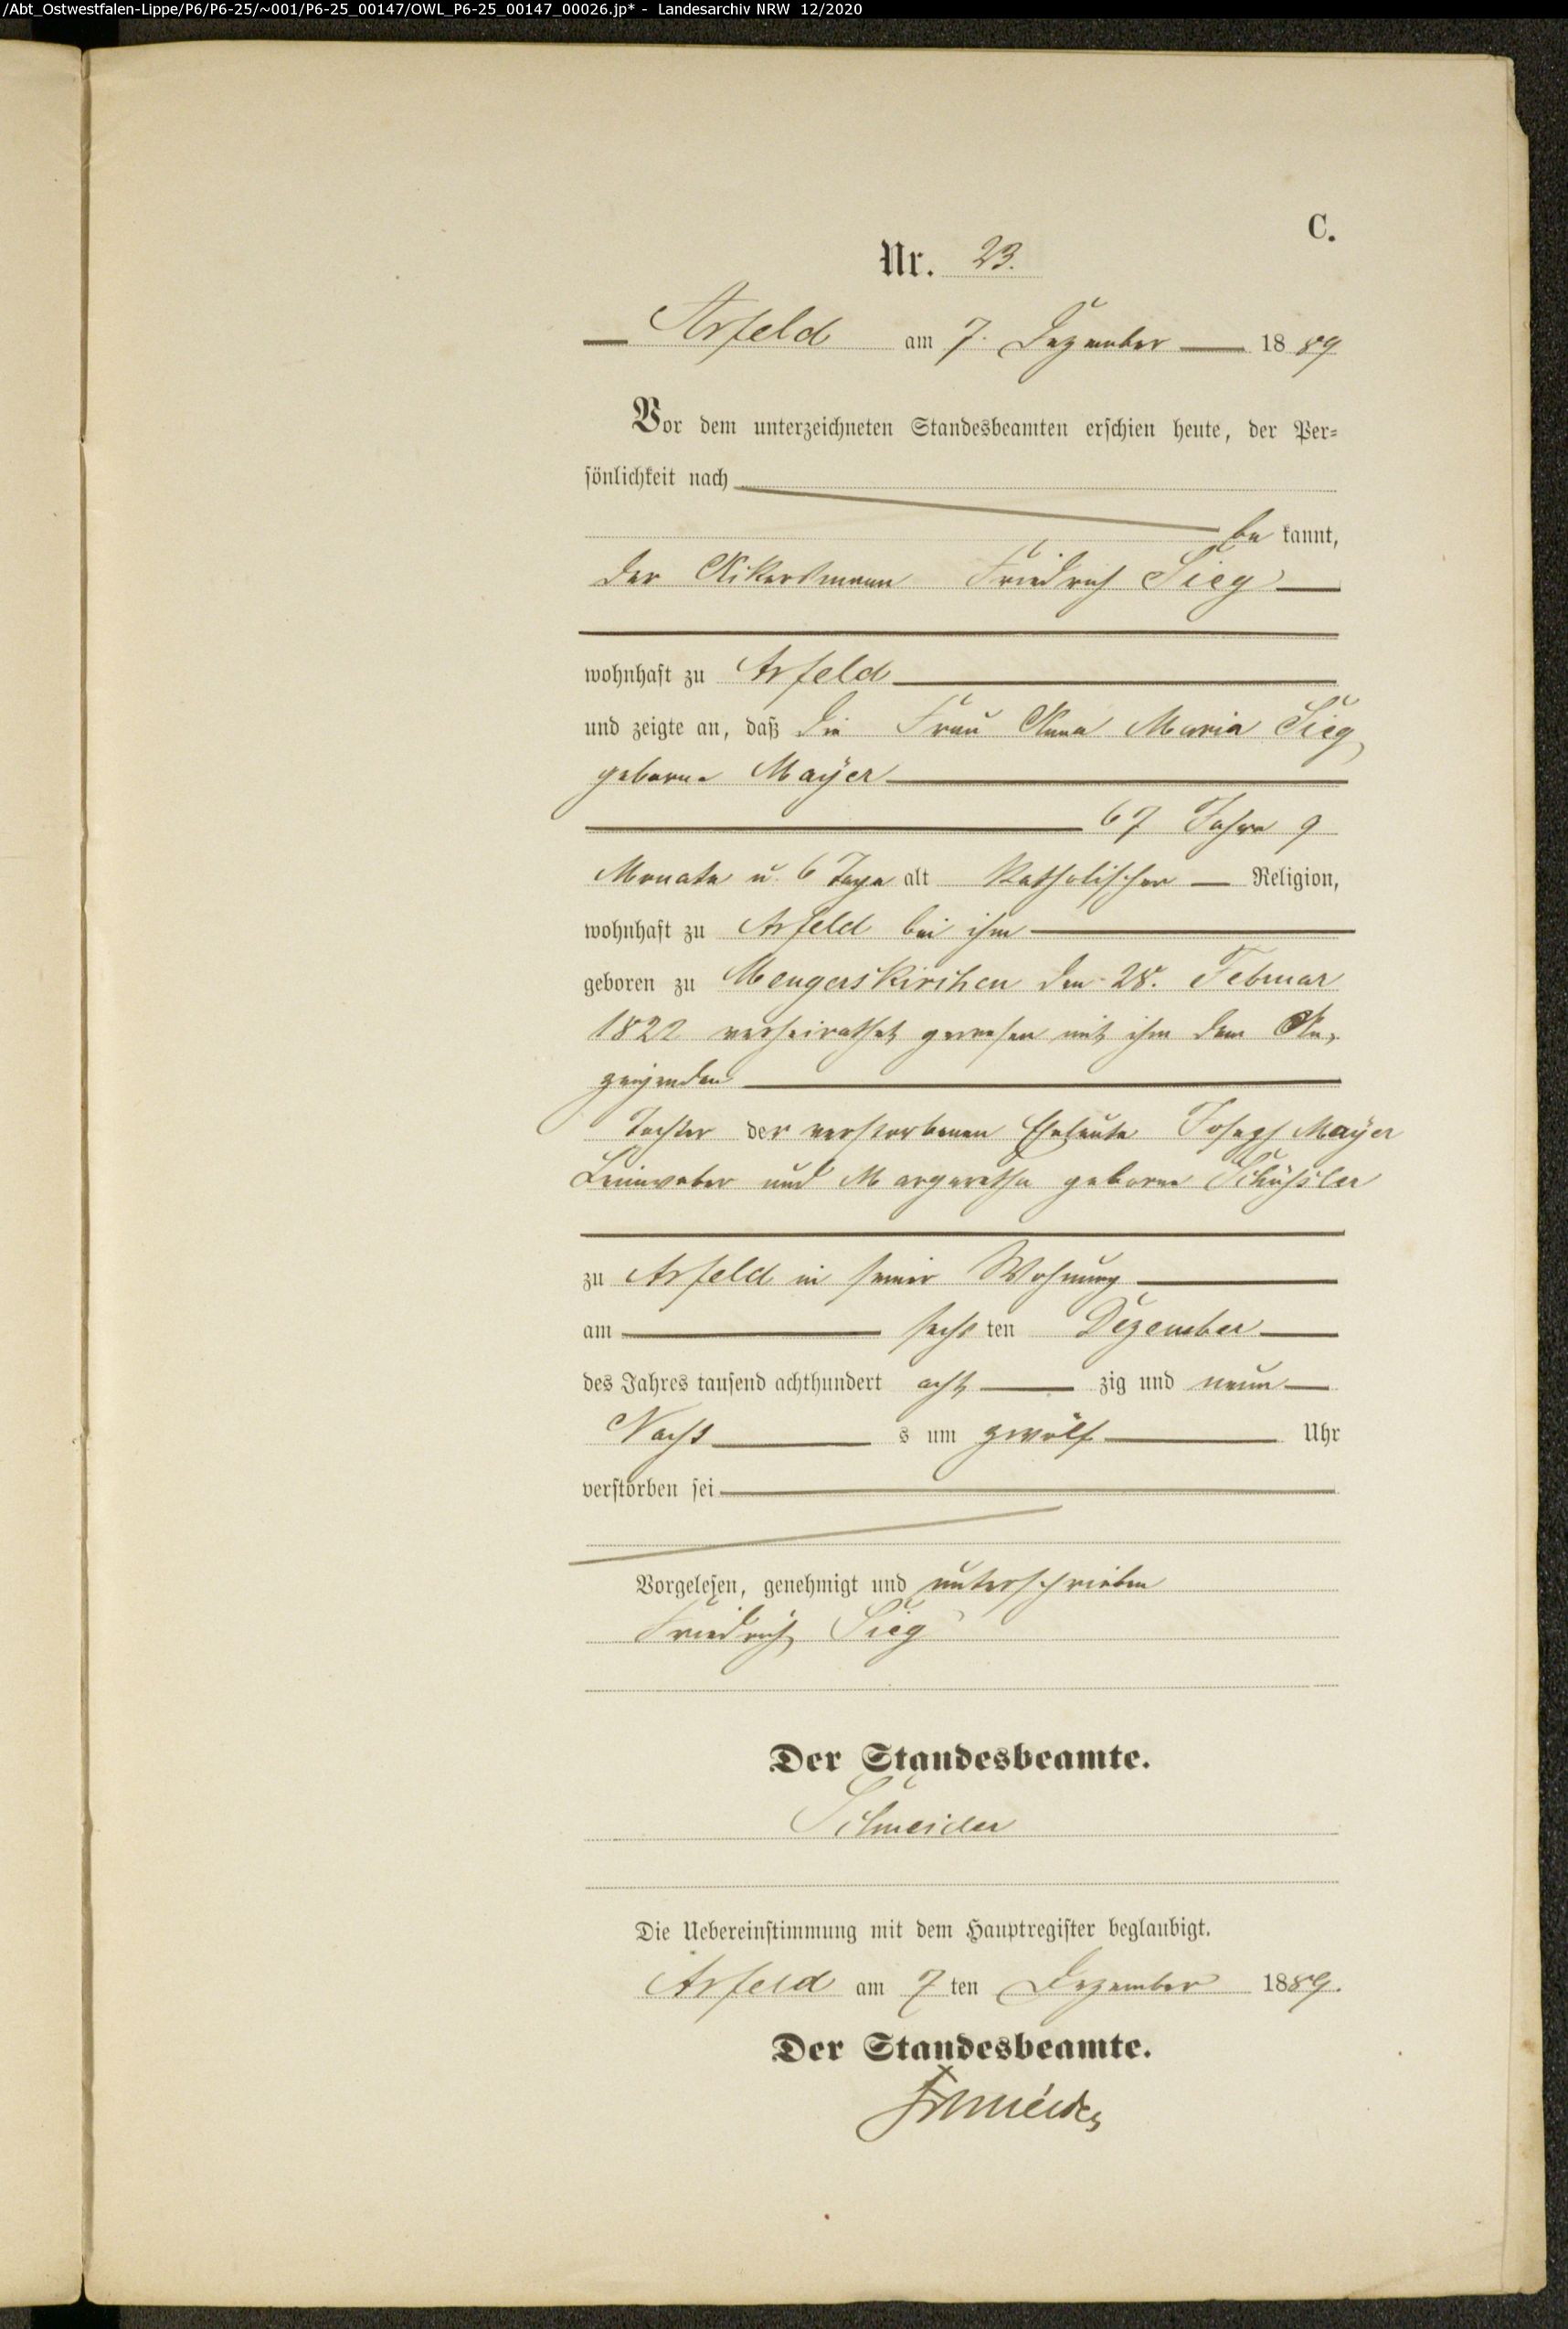 /Abt_Ostwestfalen-Lippe/P6/P6-25/~001/P6-25_00147/OWL_P6-25_00147_00026.jp* - Landesarchiv NRW 12/2020
C.
Nr. 23.
Arfeld am 7. Dezember 1889
Vor dem unterzeichneten Standesbeamten erschien heute, der Per-
sönlichkeit nach
be kannt,
der Ackersmann Friedrich Sieg
wohnhaft zu Arfeld
und zeigte an, daß die Frau Anna Maria Sieg
geborne Mayer
67 Jahre 9
Monate u. 6 Tage alt katholischer Religion,
wohnhaft zu Arfeld bei ihm
geboren zu Mengerskirchen den 28. Februar
1822 verheirathet gewesen mit ihm dem An-
zeigenden
Tochter der verstorbenen Eheleute Joseph Mayer
Leinweber und Margaretha geborne Schüssler
zu Arfeld in seiner Wohnung
am sechs ten Dezember
des Jahres tausend achthundert acht zig und neun
Nacht s um zwölf Uhr
verstorben sei
Vorgelesen, genehmigt und unterschrieben
Friedrich Sieg
Der Standesbeamte.
Schneider
Die Uebereinstimmung mit dem Hauptregister beglaubigt.
Arfeld am 7 ten Dezember 1889.
Der Standesbeamte.
Schneider